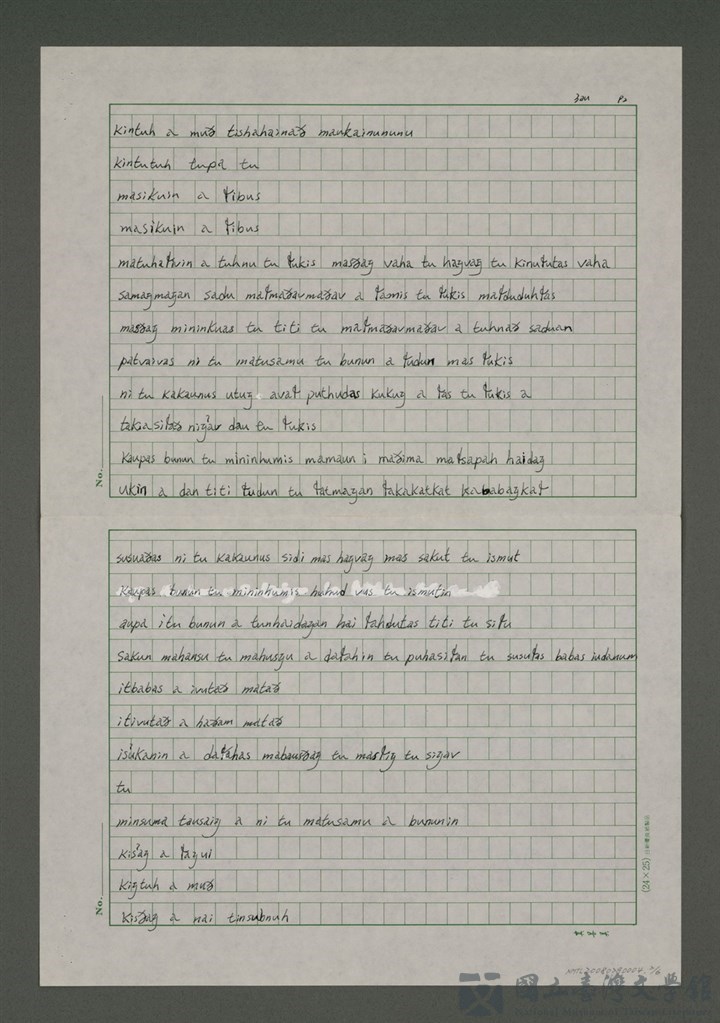 kintuh a muƨ tishahainaƨ maukainununu
kintutuh tupa tu
masikuin a ŧibus
masikuin a ŧibus
matuhaŧvin a tuhnu tu ŧukis masƨag vaha tu hagvag tu kinuŧutas vaha
samagmagan sadu maŧmaƨavmaƨav a ŧamis tu ŧukis maŧduduhŧas
masƨag mininkuas tu titi tu maŧmaƨavmaƨav a tuhnaƨ saduan
patvaivas ni tu matusamu tu bunun a ŧudun mas ŧukis
ni tu kakaunus utug avaŧ puthudas kukug a ŧas tu ŧukis a
nigav dau tu ŧukis
kaupas bunun tu mininhumis mamaun i maƨima maŧsapah haidag
ukin a dan titi ŧudun tu ŧaŧmagan ŧakakatkat kababagkaŧ
ni tu kakaunus sidi mas hagvag mas sakut tu ismut
kaupas bunun tu mininhumis hanud vas tu ismutin
aupa itu bunun a tunhaidagan hai ŧahdutas titi tu siŧu
sakun mahansu tu mahusgu a daŧahin tu puhasiŧan tu susuŧas babas iudanum
itbabas a ivutaƨ mataƨ
itivutaƨ a haƨam mataƨ
isukanin a daŧahas mabausƨag tu masŧig tu sigav
tu
minsuma tausaig a ni tu matusamu a bununin
kisƨag a ŧagui
kigtuh a muƨ
kisƨag a nai tinsubnuh
No.
No.
(24×25)
國立臺灣文學館
National Museum of Taiwan Literature